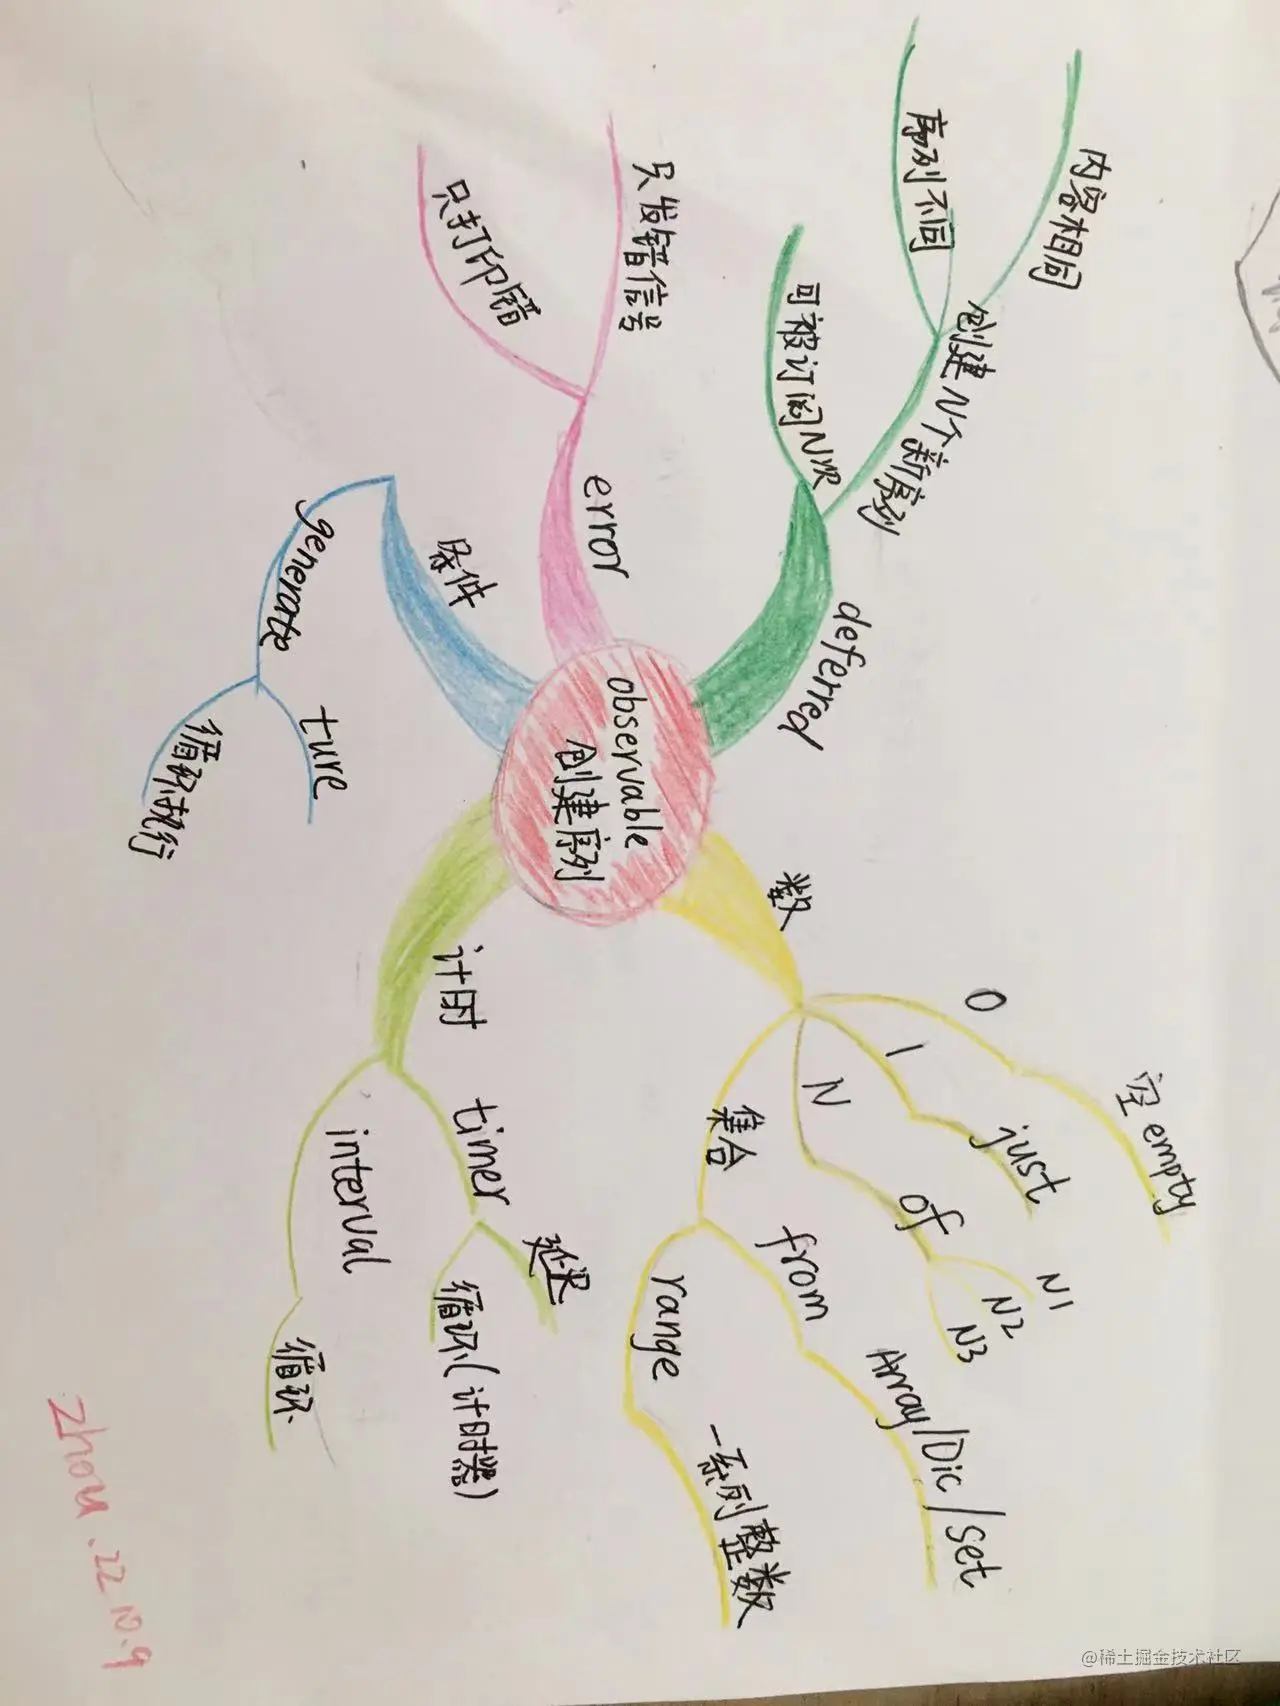 observable
创建序列
数
0
空 empty
1
just
N
of
N1
N2
N3
集合
from
Array/Dic/set
range
一系列整数
计时
timer
延迟
循环(计时器)
interval
循环
条件
generate
ture
循环执行
error
只发错信号
只打印错
deferred
可被订阅N次
创建N个新序列
内容相同
序列不同
zhou.22 10.9
@稀土掘金技术社区